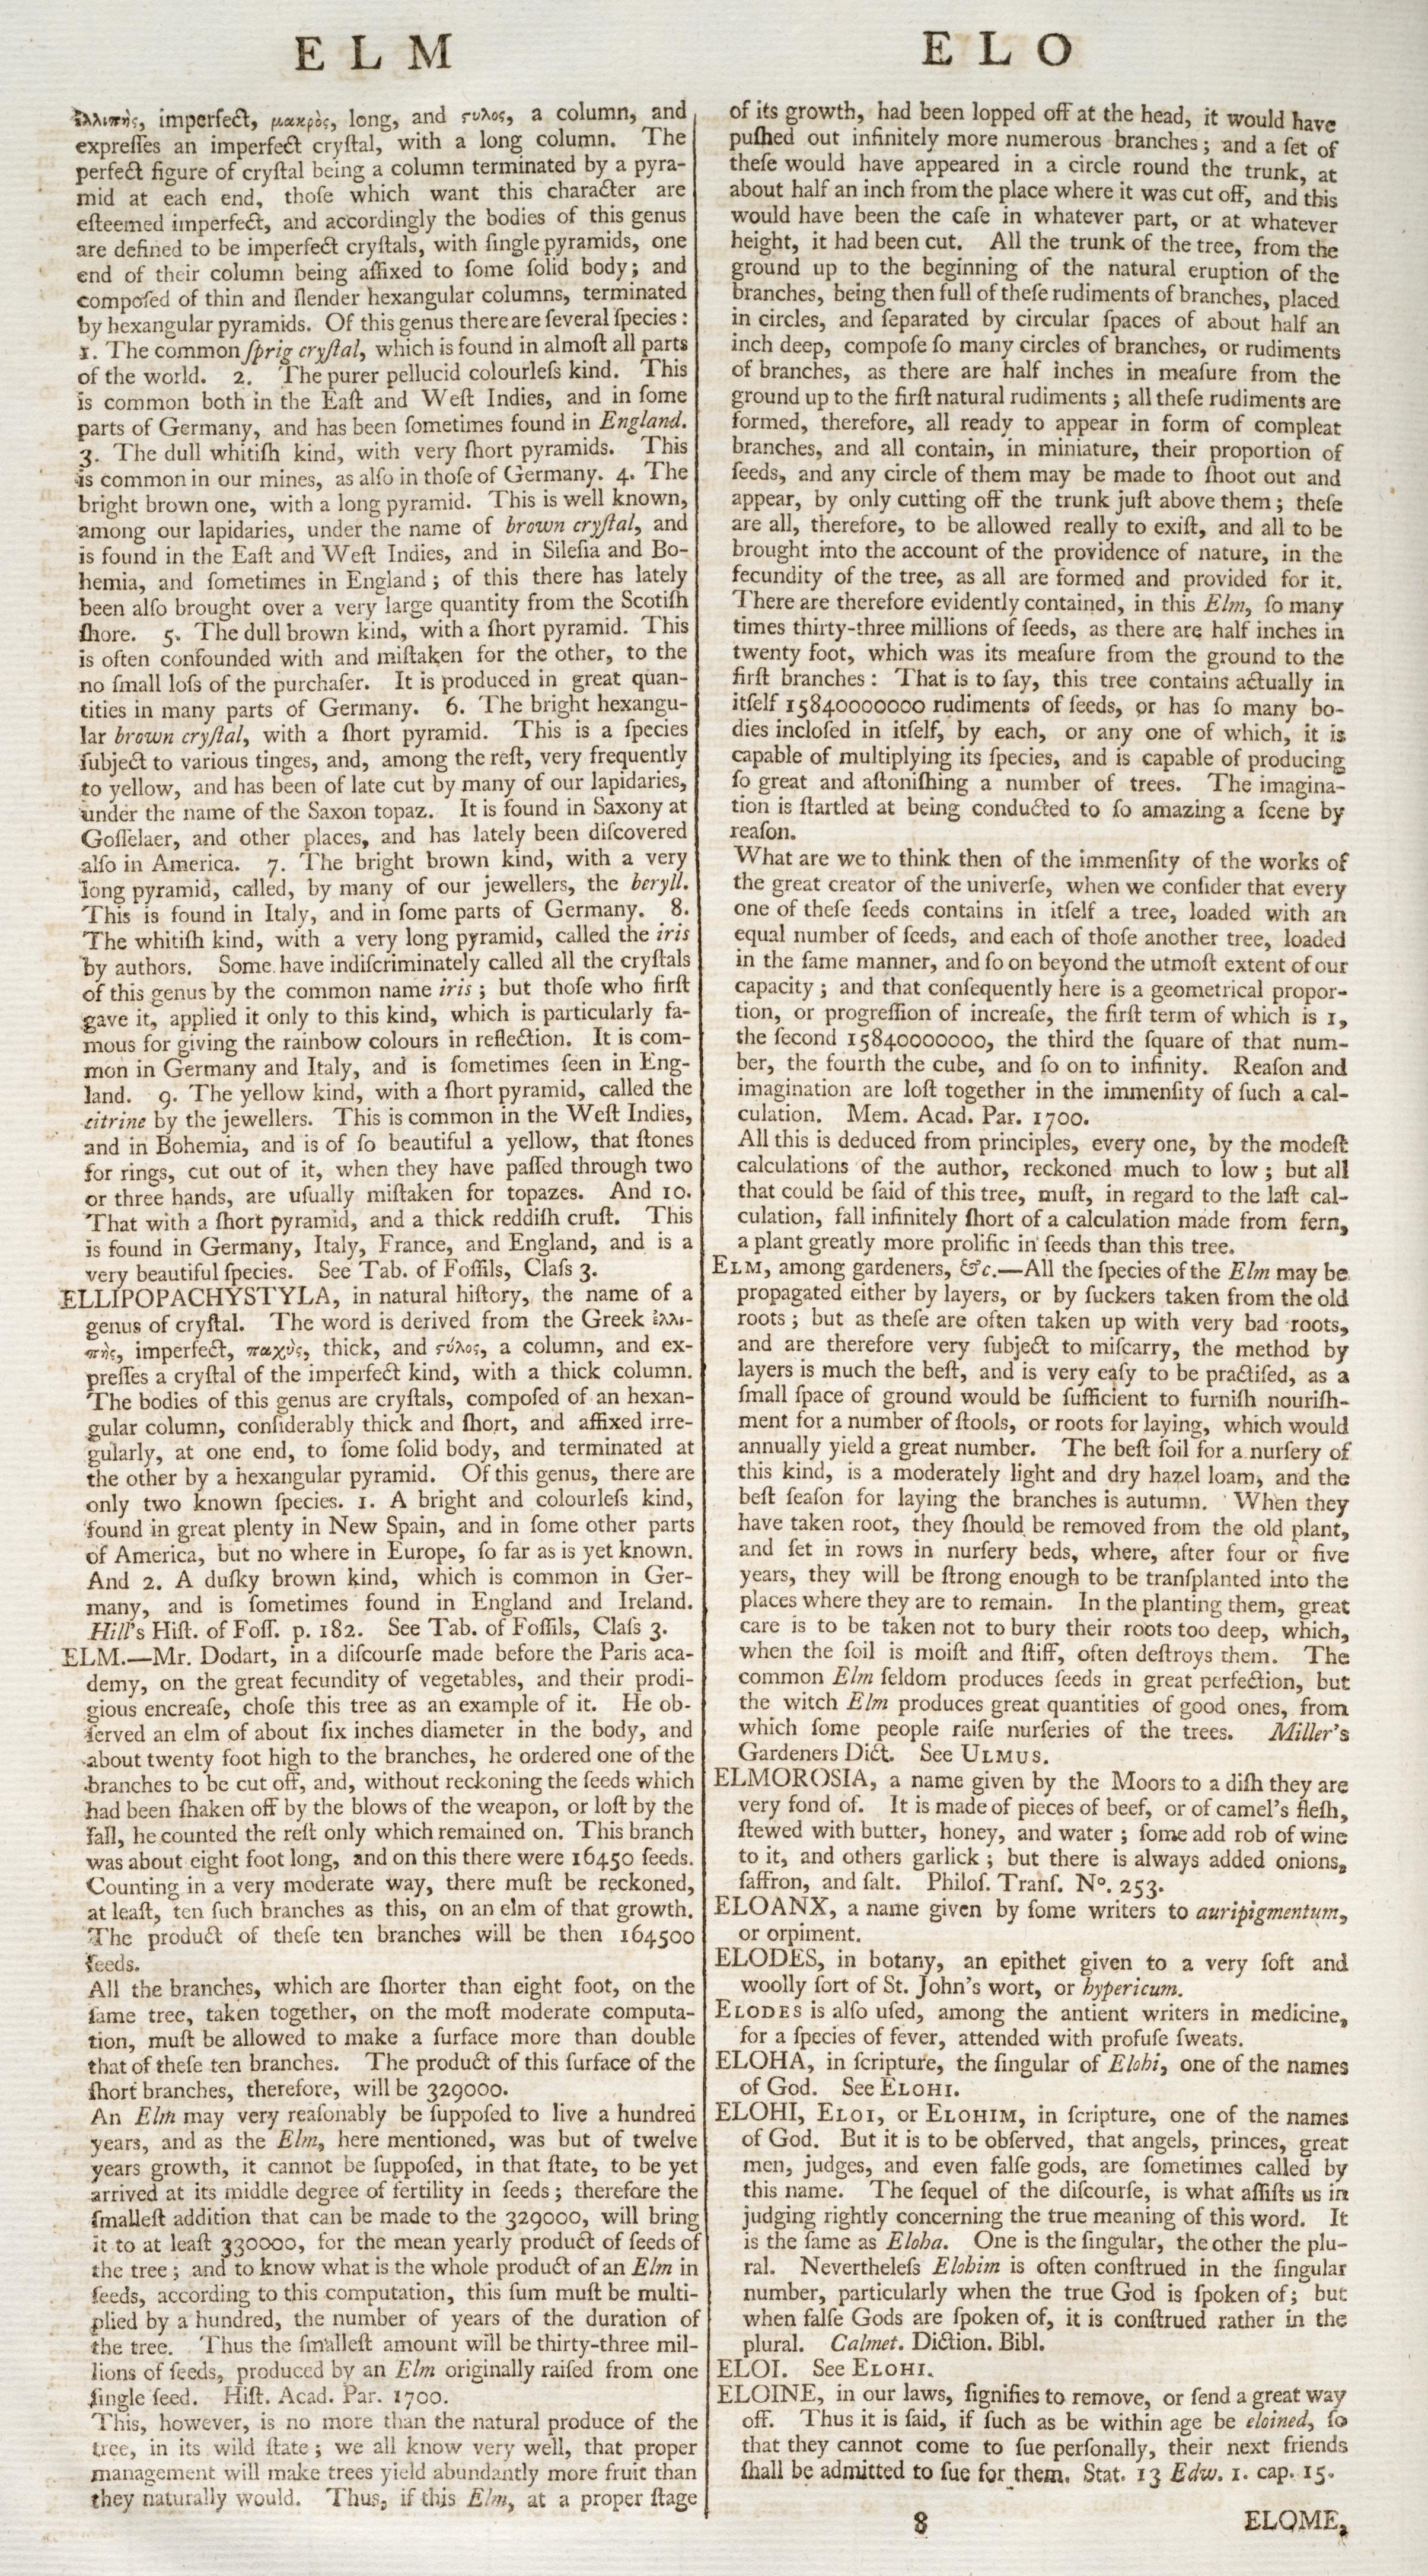 ELM
ἐλλιπὴς, imperfect, μακρὸς, long, and ςυλος, a column, and
expreſſes an imperfect cryſtal, with a long column. The
perfect figure of cryſtal being a column terminated by a pyra-
mid at each end, thoſe which want this character are
eſteemed imperfect, and accordingly the bodies of this genus
are defined to be imperfect cryſtals, with ſingle pyramids, one
end of their column being affixed to ſome ſolid body; and
compoſed of thin and ſlender hexangular columns, terminated
by hexangular pyramids. Of this genus there are ſeveral ſpecies:
1. The common ſprig cryſtal, which is found in almoſt all parts
of the world. 2. The purer pellucid colourleſs kind. This
is common both in the Eaſt and Weſt Indies, and in ſome
parts of Germany, and has been ſometimes found in England.
3. The dull whitiſh kind, with very ſhort pyramids. This
is common in our mines, as alſo in thoſe of Germany. 4. The
bright brown one, with a long pyramid. This is well known,
among our lapidaries, under the name of brown cryſtal, and
is found in the Eaſt and Weſt Indies, and in Sileſia and Bo-
hemia, and ſometimes in England; of this there has lately
been alſo brought over a very large quantity from the Scotiſh
ſhore. 5. The dull brown kind, with a ſhort pyramid. This
is often confounded with and miſtaken for the other, to the
no ſmall loſs of the purchaſer. It is produced in great quan-
tities in many parts of Germany. 6. The bright hexangu-
lar brown cryſtal, with a ſhort pyramid. This is a ſpecies
ſubject to various tinges, and, among the reſt, very frequently
to yellow, and has been of late cut by many of our lapidaries,
under the name of the Saxon topaz. It is found in Saxony at
Goſſelaer, and other places, and has lately been diſcovered
alſo in America. 7. The bright brown kind, with a very
long pyramid, called, by many of our jewellers, the beryll.
This is found in Italy, and in ſome parts of Germany. 8.
The whitiſh kind, with a very long pyramid, called the iris
by authors. Some have indiſcriminately called all the cryſtals
of this genus by the common name iris; but thoſe who firſt
gave it, applied it only to this kind, which is particularly fa-
mous for giving the rainbow colours in reflection. It is com-
mon in Germany and Italy, and is ſometimes ſeen in Eng-
land. 9. The yellow kind, with a ſhort pyramid, called the
citrine by the jewellers. This is common in the Weſt Indies,
and in Bohemia, and is of ſo beautiful a yellow, that ſtones
for rings, cut out of it, when they have paſſed through two
or three hands, are uſually miſtaken for topazes. And 10.
That with a ſhort pyramid, and a thick reddiſh cruſt. This
is found in Germany, Italy, France, and England, and is a
very beautiful ſpecies. See Tab. of Foſſils, Claſs 3.
ELLIPOPACHYSTYLA, in natural hiſtory, the name of a
genus of cryſtal. The word is derived from the Greek ἐλλι-
πὴς, imperfect, παχὺς, thick, and ςύλος, a column, and ex-
preſſes a cryſtal of the imperfect kind, with a thick column.
The bodies of this genus are cryſtals, compoſed of an hexan-
gular column, conſiderably thick and ſhort, and affixed irre-
gularly, at one end, to ſome ſolid body, and terminated at
the other by a hexangular pyramid. Of this genus, there are
only two known ſpecies. 1. A bright and colourleſs kind,
found in great plenty in New Spain, and in ſome other parts
of America, but no where in Europe, ſo far as is yet known.
And 2. A duſky brown kind, which is common in Ger-
many, and is ſometimes found in England and Ireland.
Hill's Hiſt. of Foſſ. p. 182. See Tab. of Foſſils, Claſs 3.
ELM.—Mr. Dodart, in a diſcourſe made before the Paris aca-
demy, on the great fecundity of vegetables, and their prodi-
gious encreaſe, choſe this tree as an example of it. He ob-
ſerved an elm of about ſix inches diameter in the body, and
about twenty foot high to the branches, he ordered one of the
branches to be cut off, and, without reckoning the ſeeds which
had been ſhaken off by the blows of the weapon, or loſt by the
fall, he counted the reſt only which remained on. This branch
was about eight foot long, and on this there were 16450 ſeeds.
Counting in a very moderate way, there muſt be reckoned,
at leaſt, ten ſuch branches as this, on an elm of that growth.
The product of theſe ten branches will be then 164500
ſeeds.
All the branches, which are ſhorter than eight foot, on the
ſame tree, taken together, on the moſt moderate computa-
tion, muſt be allowed to make a ſurface more than double
that of theſe ten branches. The product of this ſurface of the
ſhort branches, therefore, will be 329000.
An Elm may very reaſonably be ſuppoſed to live a hundred
years, and as the Elm, here mentioned, was but of twelve
years growth, it cannot be ſuppoſed, in that ſtate, to be yet
arrived at its middle degree of fertility in ſeeds; therefore the
ſmalleſt addition that can be made to the 329000, will bring
it to at leaſt 330000, for the mean yearly product of ſeeds of
the tree; and to know what is the whole product of an Elm in
ſeeds, according to this computation, this ſum muſt be multi-
plied by a hundred, the number of years of the duration of
the tree. Thus the ſmalleſt amount will be thirty-three mil-
lions of ſeeds, produced by an Elm originally raiſed from one
ſingle ſeed. Hiſt. Acad. Par. 1700.
This, however, is no more than the natural produce of the
tree, in its wild ſtate; we all know very well, that proper
management will make trees yield abundantly more fruit than
they naturally would. Thus, if this Elm, at a proper ſtage
ELO
of its growth, had been lopped off at the head, it would have
puſhed out infinitely more numerous branches; and a ſet of
theſe would have appeared in a circle round the trunk, at
about half an inch from the place where it was cut off, and this
would have been the caſe in whatever part, or at whatever
height, it had been cut. All the trunk of the tree, from the
ground up to the beginning of the natural eruption of the
branches, being then full of theſe rudiments of branches, placed
in circles, and ſeparated by circular ſpaces of about half an
inch deep, compoſe ſo many circles of branches, or rudiments
of branches, as there are half inches in meaſure from the
ground up to the firſt natural rudiments; all theſe rudiments are
formed, therefore, all ready to appear in form of compleat
branches, and all contain, in miniature, their proportion of
ſeeds, and any circle of them may be made to ſhoot out and
appear, by only cutting off the trunk juſt above them; theſe
are all, therefore, to be allowed really to exiſt, and all to be
brought into the account of the providence of nature, in the
fecundity of the tree, as all are formed and provided for it.
There are therefore evidently contained, in this Elm, ſo many
times thirty-three millions of ſeeds, as there are half inches in
twenty foot, which was its meaſure from the ground to the
firſt branches: That is to ſay, this tree contains actually in
itſelf 15840000000 rudiments of ſeeds, or has ſo many bo-
dies incloſed in itſelf, by each, or any one of which, it is
capable of multiplying its ſpecies, and is capable of producing
ſo great and aſtoniſhing a number of trees. The imagina-
tion is ſtartled at being conducted to ſo amazing a ſcene by
reaſon.
What are we to think then of the immenſity of the works of
the great creator of the univerſe, when we conſider that every
one of theſe ſeeds contains in itſelf a tree, loaded with an
equal number of ſeeds, and each of thoſe another tree, loaded
in the ſame manner, and ſo on beyond the utmoſt extent of our
capacity; and that conſequently here is a geometrical propor-
tion, or progreſſion of increaſe, the firſt term of which is 1,
the ſecond 15840000000, the third the ſquare of that num-
ber, the fourth the cube, and ſo on to infinity. Reaſon and
imagination are loſt together in the immenſity of ſuch a cal-
culation. Mem. Acad. Par. 1700.
All this is deduced from principles, every one, by the modeſt
calculations of the author, reckoned much to low; but all
that could be ſaid of this tree, muſt, in regard to the laſt cal-
culation, fall infinitely ſhort of a calculation made from fern,
a plant greatly more prolific in ſeeds than this tree.
ELM, among gardeners, &c.—All the ſpecies of the Elm may be
propagated either by layers, or by ſuckers taken from the old
roots; but as theſe are often taken up with very bad roots,
and are therefore very ſubject to miſcarry, the method by
layers is much the beſt, and is very eaſy to be practiſed, as a
ſmall ſpace of ground would be ſufficient to furniſh nouriſh-
ment for a number of ſtools, or roots for laying, which would
annually yield a great number. The beſt ſoil for a nurſery of
this kind, is a moderately light and dry hazel loam, and the
beſt ſeaſon for laying the branches is autumn. When they
have taken root, they ſhould be removed from the old plant,
and ſet in rows in nurſery beds, where, after four or five
years, they will be ſtrong enough to be tranſplanted into the
places where they are to remain. In the planting them, great
care is to be taken not to bury their roots too deep, which,
when the ſoil is moiſt and ſtiff, often deſtroys them. The
common Elm ſeldom produces ſeeds in great perfection, but
the witch Elm produces great quantities of good ones, from
which ſome people raiſe nurſeries of the trees. Miller's
Gardeners Dict. See ULMUS.
ELMOROSIA, a name given by the Moors to a diſh they are
very fond of. It is made of pieces of beef, or of camel's fleſh,
ſtewed with butter, honey, and water; ſome add rob of wine
to it, and others garlick; but there is always added onions,
ſaffron, and ſalt. Philoſ. Tranſ. Nº. 253.
ELOANX, a name given by ſome writers to auripigmentum,
or orpiment.
ELODES, in botany, an epithet given to a very ſoft and
woolly ſort of St. John's wort, or hypericum.
ELODES is alſo uſed, among the antient writers in medicine,
for a ſpecies of fever, attended with profuſe ſweats.
ELOHA, in ſcripture, the ſingular of Elohi, one of the names
of God. See ELOHI.
ELOHI, ELOI, or ELOHIM, in ſcripture, one of the names
of God. But it is to be obſerved, that angels, princes, great
men, judges, and even falſe gods, are ſometimes called by
this name. The ſequel of the diſcourſe, is what aſſiſts us in
judging rightly concerning the true meaning of this word. It
is the ſame as Eloha. One is the ſingular, the other the plu-
ral. Nevertheleſs Elohim is often conſtrued in the ſingular
number, particularly when the true God is ſpoken of; but
when falſe Gods are ſpoken of, it is conſtrued rather in the
plural. Calmet. Diction. Bibl.
ELOI. See ELOHI.
ELOINE, in our laws, ſignifies to remove, or ſend a great way
off. Thus it is ſaid, if ſuch as be within age be eloined, ſo
that they cannot come to ſue perſonally, their next friends
ſhall be admitted to ſue for them. Stat. 13 Edw. 1. cap. 15.
8
ELOME,